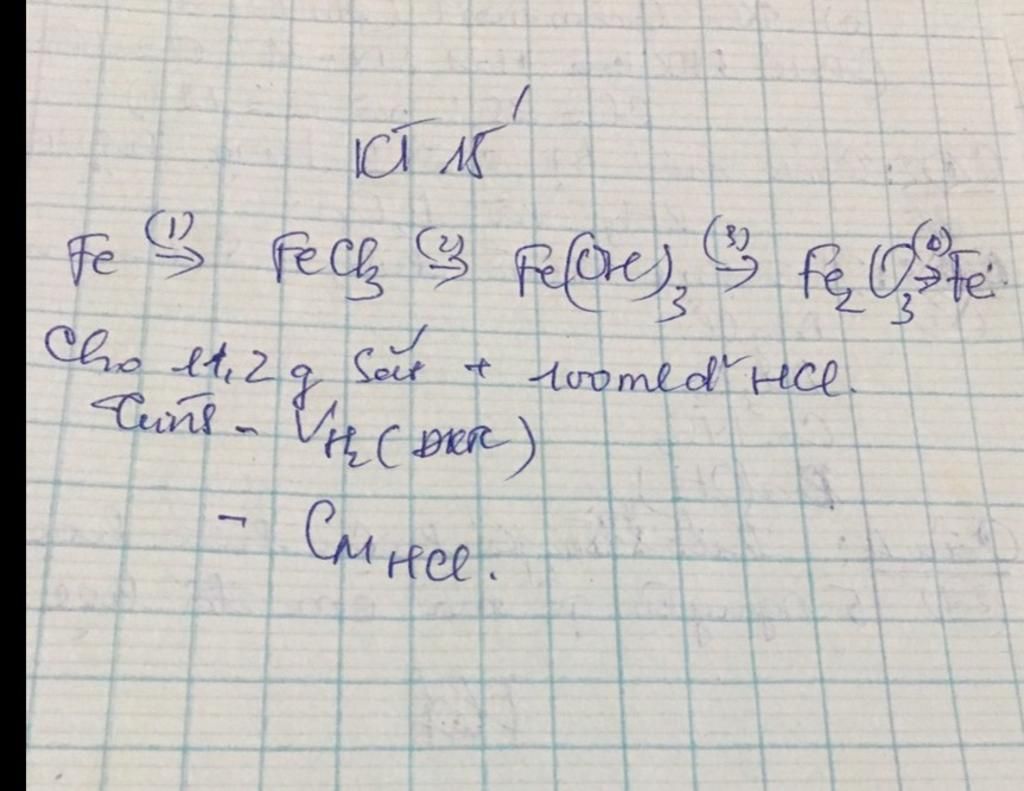 KT 15'
Fe (1)→ FeCl₃ (2)→ Fe(OH)₃ (3)→ Fe₂O₃ (4)→ Fe.
Cho 11,2 g Sắt + 100ml d² HCl.
Tính - V H₂ (ĐKTC)
- CM HCl.